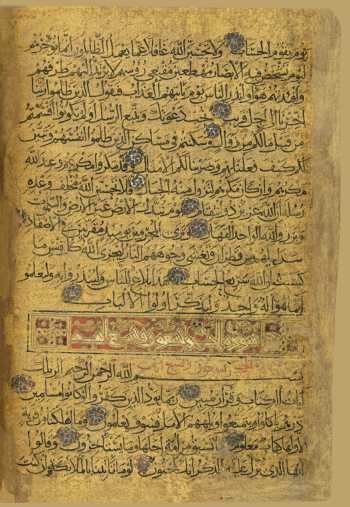 يوم يقوم الحساب ولا تحسبن الله غافلا عما يعمل الظالمون انما يؤخرهم
ليوم تشخص فيه الابصار مهطعين مقنعي رؤسهم لا يرتد اليهم طرفهم
وافئدتهم هواء وانذر الناس يوم ياتيهم العذاب فيقول الذين ظلموا ربنا
اخرنا الى اجل قريب نجب دعوتك ونتبع الرسل اولم تكونوا اقسمتم
من قبل ما لكم من زوال وسكنتم في مساكن الذين ظلموا انفسهم وتبين
لكم كيف فعلنا بهم وضربنا لكم الامثال وقد مكروا مكرهم وعند الله
مكرهم وان كان مكرهم لتزول منه الجبال فلا تحسبن الله مخلف وعده
رسله ان الله عزيز ذو انتقام يوم تبدل الارض غير الارض والسموات
وبرزوا لله الواحد القهار وترى المجرمين يومئذ مقرنين في الاصفاد
سرابيلهم من قطران وتغشى وجوههم النار ليجزي الله كل نفس ما
كسبت ان الله سريع الحساب هذا بلاغ للناس ولينذروا به وليعلموا
انما هو اله واحد وليذكر اولوا الالباب
بسم الله الرحمن الرحيم الر تلك
ايات الكتاب وقران مبين ربما يود الذين كفروا لو كانوا مسلمين
ذرهم ياكلوا ويتمتعوا ويلههم الامل فسوف يعلمون وما اهلكنا من قرية
الا ولها كتاب معلوم ما تسبق من امة اجلها وما يستاخرون وقالوا
يا ايها الذي نزل عليه الذكر انك لمجنون لو ما تاتينا بالملائكة ان كنت